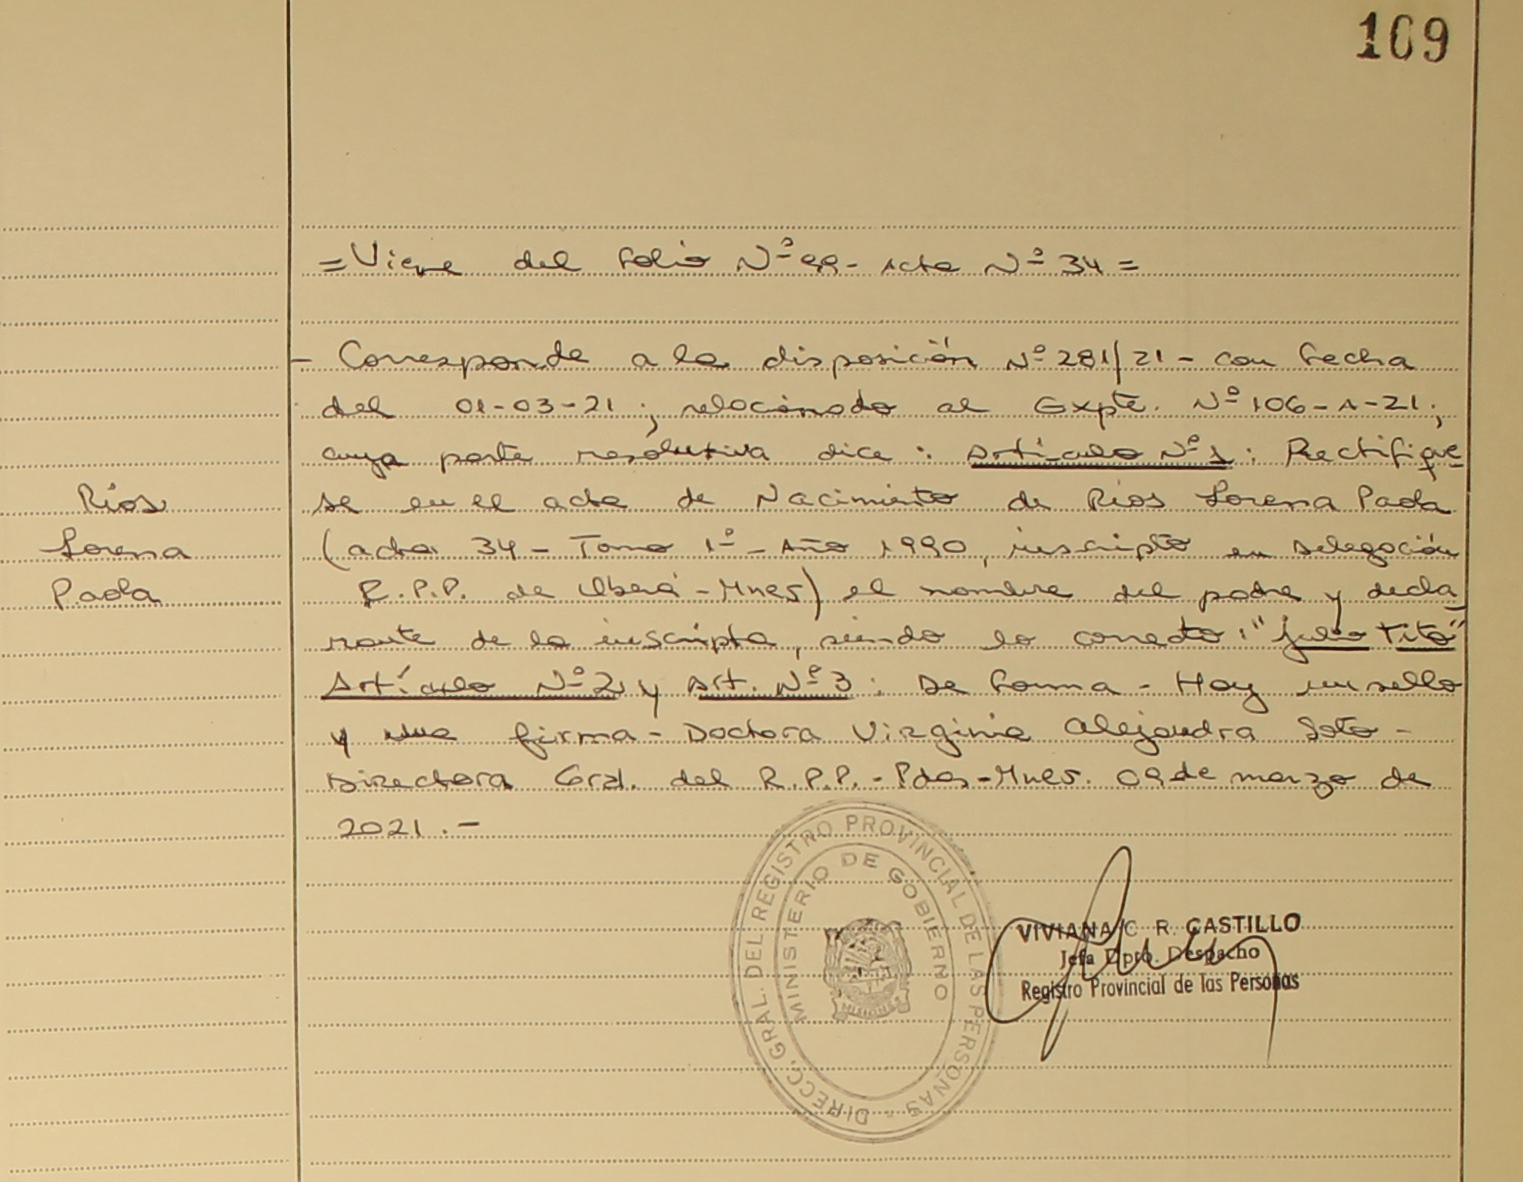 109
=Viene del folio Nº 99- Acta Nº 34=
- Corresponde a la disposición Nº 281/21 - con fecha
del 01-03-21; relacionado al Expte. Nº 106-A-21;
cuya parte resolutiva dice: Artículo Nº 1: Rectifique
Ríos
Lorena
Paola
se en el acta de Nacimiento de Ríos Lorena Paola
(acta 34 - Tomo 1º - Año 1990, inscripto en Delegación
R.P.P. de Oberá - Mnes) el nombre del padre y decla
rante de la inscripta, siendo lo correcto: "Julio Tito"
Artículo Nº 2 y Art. Nº 3: De forma - Hay un sello
y una firma - Doctora Virginia Alejandra Soto -
Directora Gral. del R.P.P. - Pdas - Mnes. 09 de marzo de
2021.-
DIRECC. GRAL. DEL REGISTRO PROVINCIAL DE LAS PERSONAS -
MINISTERIO DE GOBIERNO
VIVIANA C. R. CASTILLO
Jefa Dpto. Despacho
Registro Provincial de las Personas